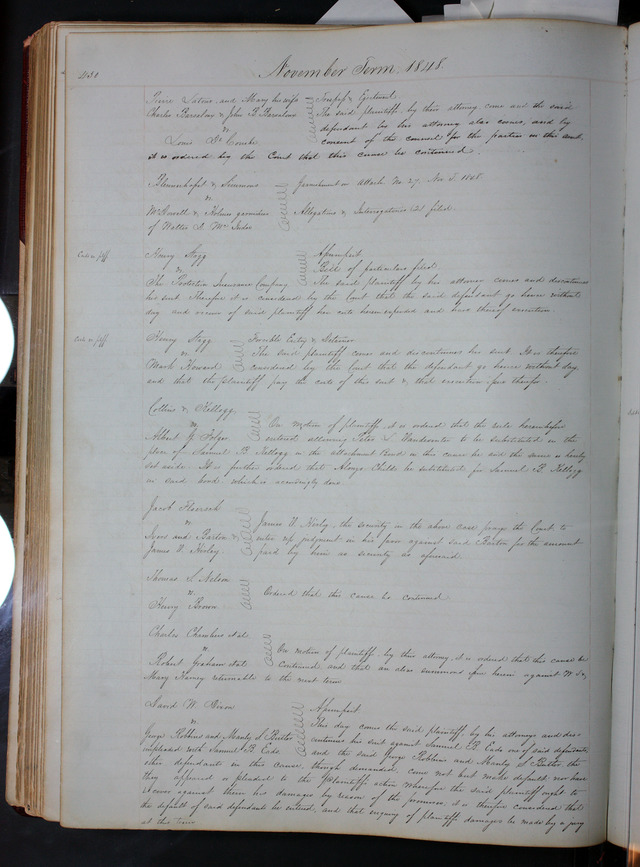 430 November Term 1848.
Pierre Latour and Mary his wife Trespass & Ejectment
Charles Barsalou & John B. Barsalou The said plaintiffs by their attorney come and the said
vs defendant by his attorney also comes, and by
Louis D. consent of the counsel for the parties in this suit
it is ordered by the Court that this cause be continued.
& Simmons Garnishment on Attach. No 27. Nov. T. 1848
vs
McDowell & Holmes garnishees Allegations & Interrogatories filed.
of Walter D.
Costs vs plff. Henry Stagg Assumpsit
vs Bill of particulars filed.
The Protection Insurance Company The said plaintiff by his attorney comes and discontinues
his suit. Therefore it is considered by the Court that the said defendant go hence without
day and recover of said plaintiff her costs herein expended and have thereof execution.
Costs vs plff. Henry Stagg Forcible Entry & Detainer
vs The said plaintiff comes and discontinues his suit. It is therefore
Mark Howard considered by the Court that the defendant go hence without day
and that the plaintiff pay the costs of this suit & that execution issue therefor.
Collins & Kellogg
vs On motion of plaintiffs, it is ordered that the rule heretofore
Albert G. entered allowing Peter L. to be substituted in the
place of Samuel B. Kellogg in the attachment Bond in this cause be and the same is hereby
set aside. It is further ordered that Alonzo Childs be substituted for Samuel B. Kellogg
in said bond which is accordingly done
Jacob
vs James T. the security in the above case prays the Court to
and Barton & enter up judgment in his favor against said Barton for the amount
James T. paid by him as security as aforesaid.
Thomas S. Nelson
vs Ordered that this cause be continued
Henry Brown
Charles Chambers et al.
vs On motion of plaintiffs by their attorney, it is ordered that this cause be
Robert Graham et al. Continued, and that an alias summons issue herein against
Mary returnable to the next term
David W. Dixon Assumpsit
vs This day comes the said plaintiff by his attorneys and dis-
George Robbins and Manly S. Butler continues his suit against Samuel B. Eads one of said defendants
impleaded with Samuel B. Eads. and the said George Robbins and Manly S. Butler the
other defendants in this cause, though demanded, come not but make default nor have
they appeared or pleaded to the Plaintiffs action wherefore the said plaintiff ought to
recover against them his damages by reason of the premises, it is therefore considered that
the default of said defendants be entered, and that enquiry of plaintiffs damages be made by a jury
at this term